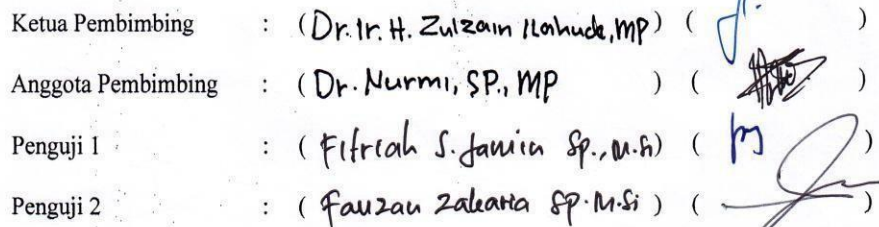 Ketua Pembimbing : (Dr. Ir. H. Zulzain Ilahude, MP) ( )
Anggota Pembimbing : (Dr. Nurmi, SP., MP ) ( )
Penguji 1 : (Fitriah S. Jamin Sp., M.Si) ( )
Penguji 2 : (Fauzan Zakaria Sp. M.Si) ( )